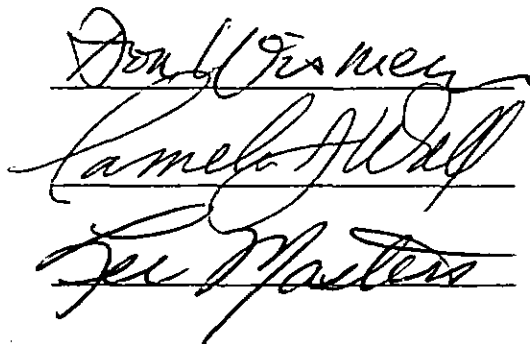 Don Wismer
Pamela J Wall
Lee Masters